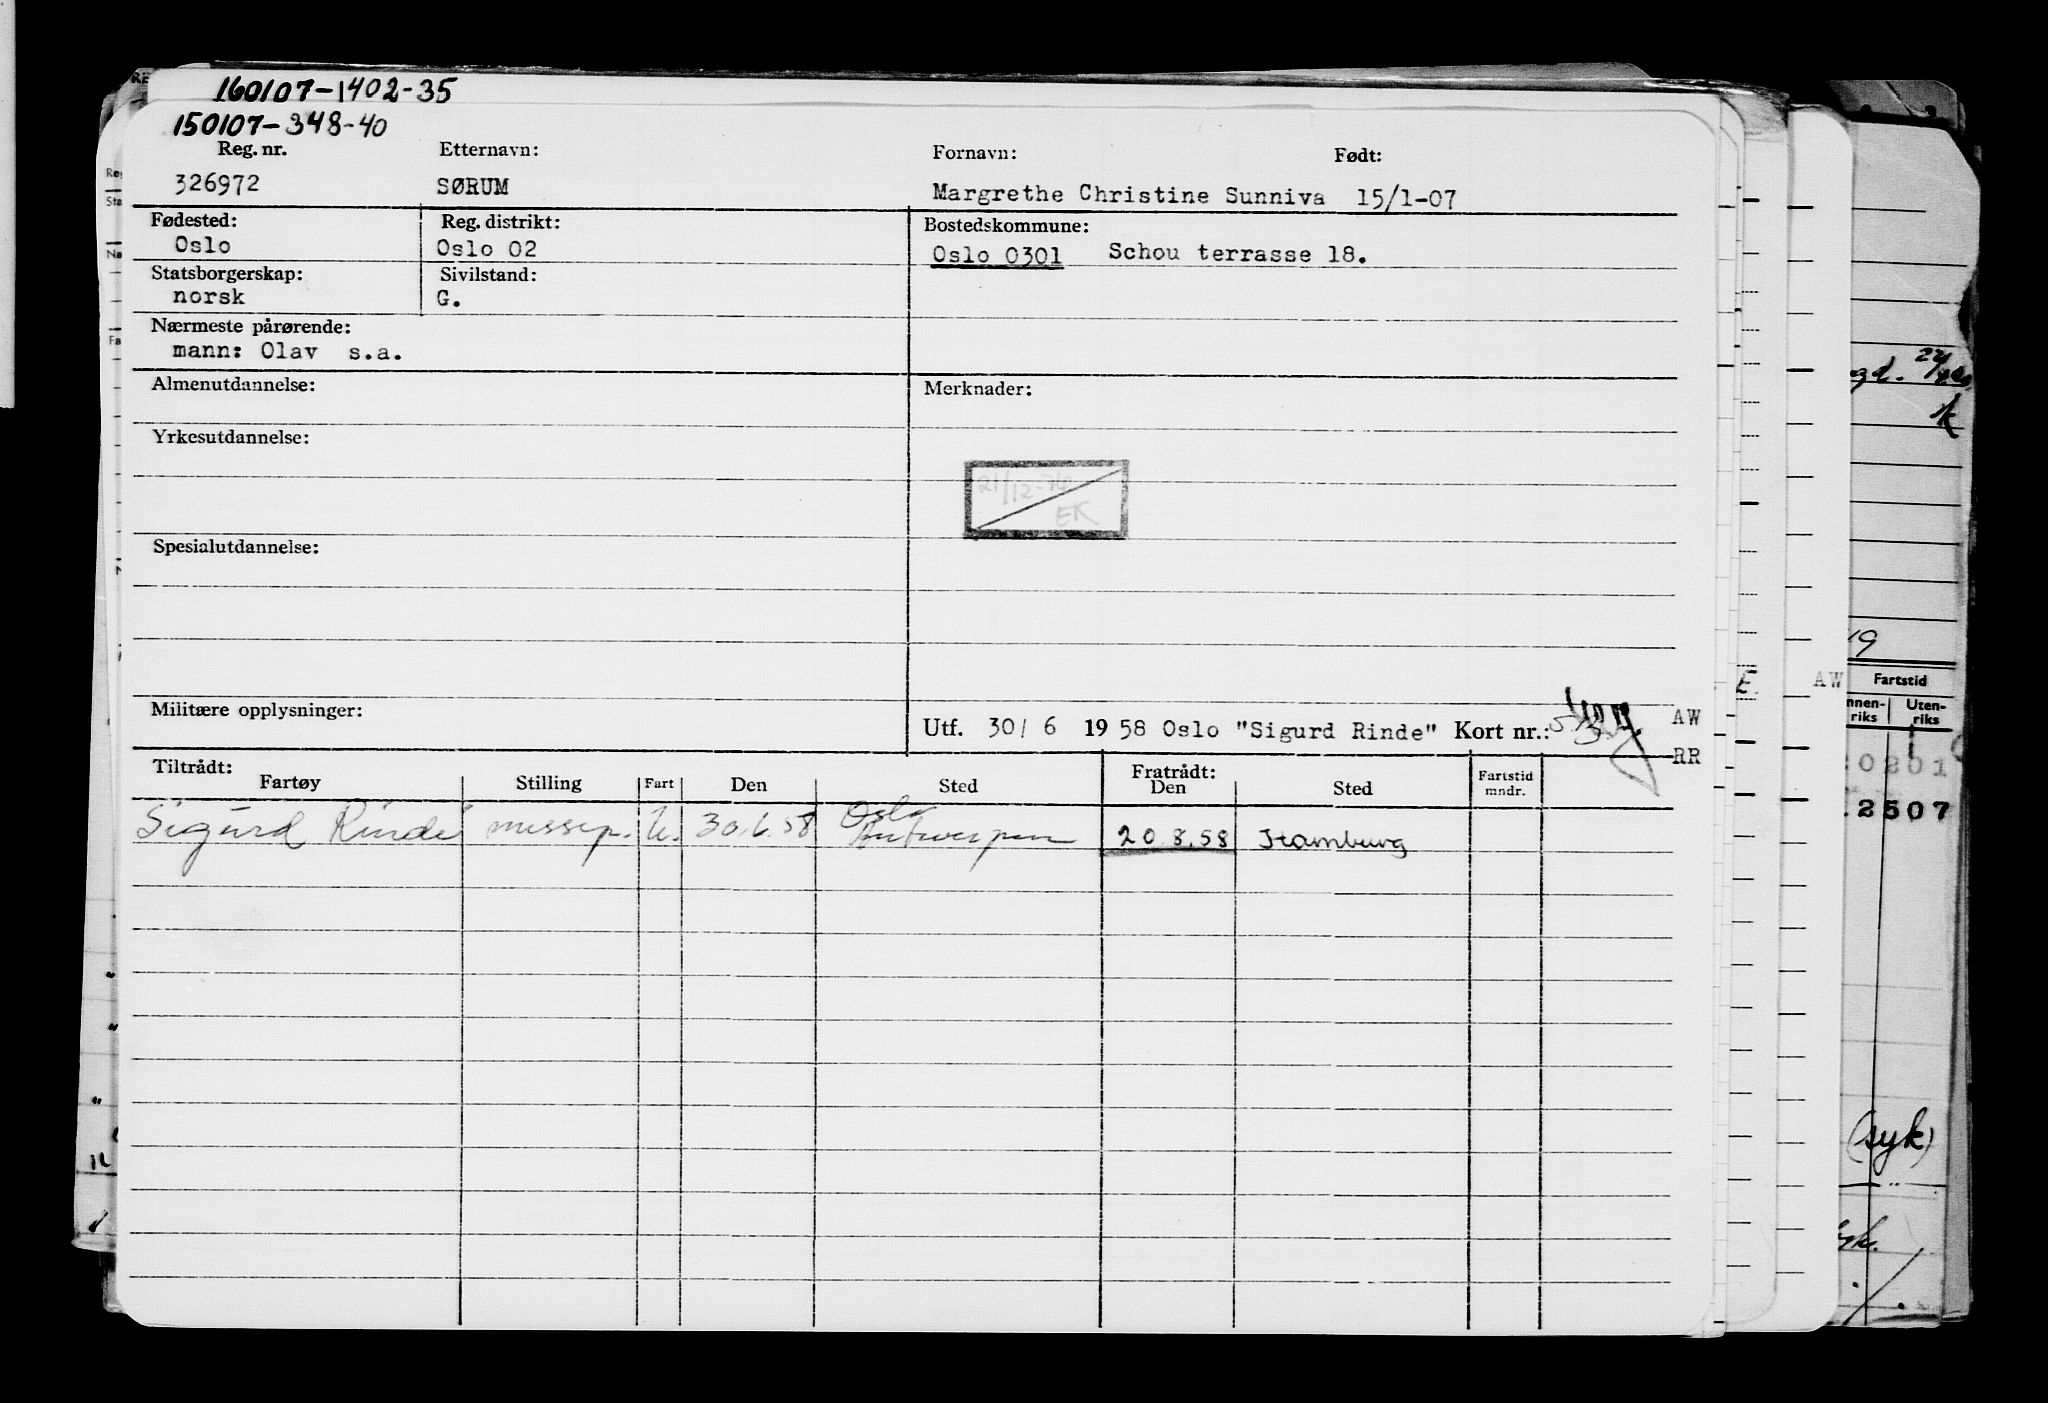 160107-1402-35
150107-348-40
Reg. nr. Etternavn: Fornavn: Født:
326972 SØRUM Margrethe Christine Sunniva 15/1-07
Fødested: Reg. distrikt: Bostedskommune:
Oslo Oslo 02 Oslo 0301 Schou terrasse 18.
Statsborgerskap: Sivilstand:
norsk G.
Nærmeste pårørende:
mann: Olav s.a.
Almenutdannelse: Merknader:
Yrkesutdannelse:
21/12-
EK
Spesialutdannelse:
Militære opplysninger:
Utf. 30/ 6 19 58 Oslo "Sigurd Rinde" Kort nr.: AW
RR
Tiltrådt: Fratrådt:
Fartøy Stilling Fart Den Sted Den Sted Fartstid mndr.
Sigurd Rinde messep. U. 30.6.58 Oslo
Antwerpen 20.8.58 Hamburg
22/
19
E. AW
Fartstid
Uten-
riks riks
2507
(syk)